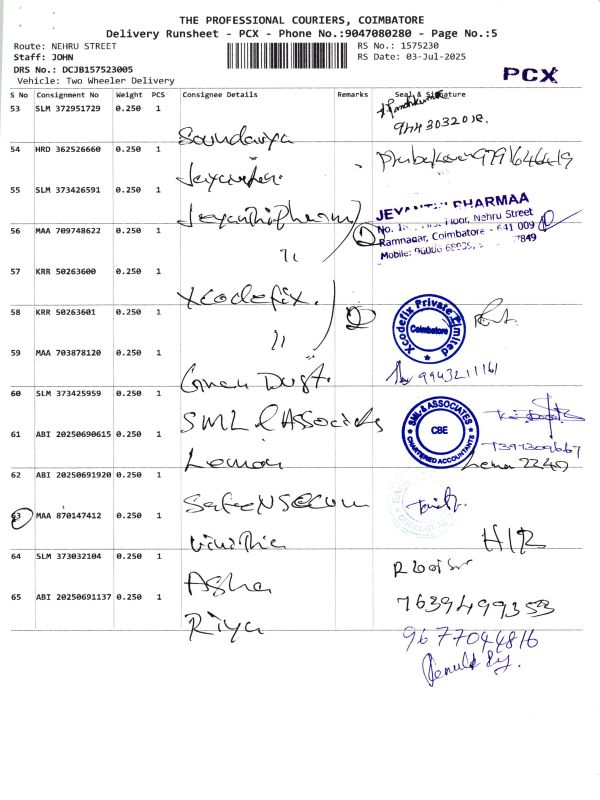 THE PROFESSIONAL COURIERS, COIMBATORE
Delivery Runsheet - PCX - Phone No.:9047080280 - Page No.:5
Route: NEHRU STREET
RS No.: 1575230
Staff: JOHN
RS Date: 03-Jul-2025
DRS No.: DCJB157523005
Vehicle: Two Wheeler Delivery
PCX
S No Consignment No Weight PCS Consignee Details Remarks Seal & Signature
53 SLM 372951729 0.250 1 Soundarya
9443032018
54 HRD 362526660 0.250 1
9791646419
55 SLM 373426591 0.250 1 Jeyanthi Pharma
JEYANTHI PHARMAA
Floor, Nehru Street
Ramnagar, Coimbatore - 641 009
Mobile:
56 MAA 709748622 0.250 1 11
2
57 KRR 50263600 0.250 1 Xcodefix.
58 KRR 50263601 0.250 1 11
2
Xcodefix Private Limited
Coimbatore
59 MAA 703878120 0.250 1
9943211161
60 SLM 373425959 0.250 1 SML & Associates
SML & ASSOCIATES
CBE
CHARTERED ACCOUNTANTS
7397309667
61 ABI 20250690615 0.250 1 Leman
2240
62 ABI 20250691920 0.250 1
63 MAA 870147412 0.250 1 Vinothia
H/R
64 SLM 373032104 0.250 1 Asha
7639499353
65 ABI 20250691137 0.250 1 Riya
9677044816